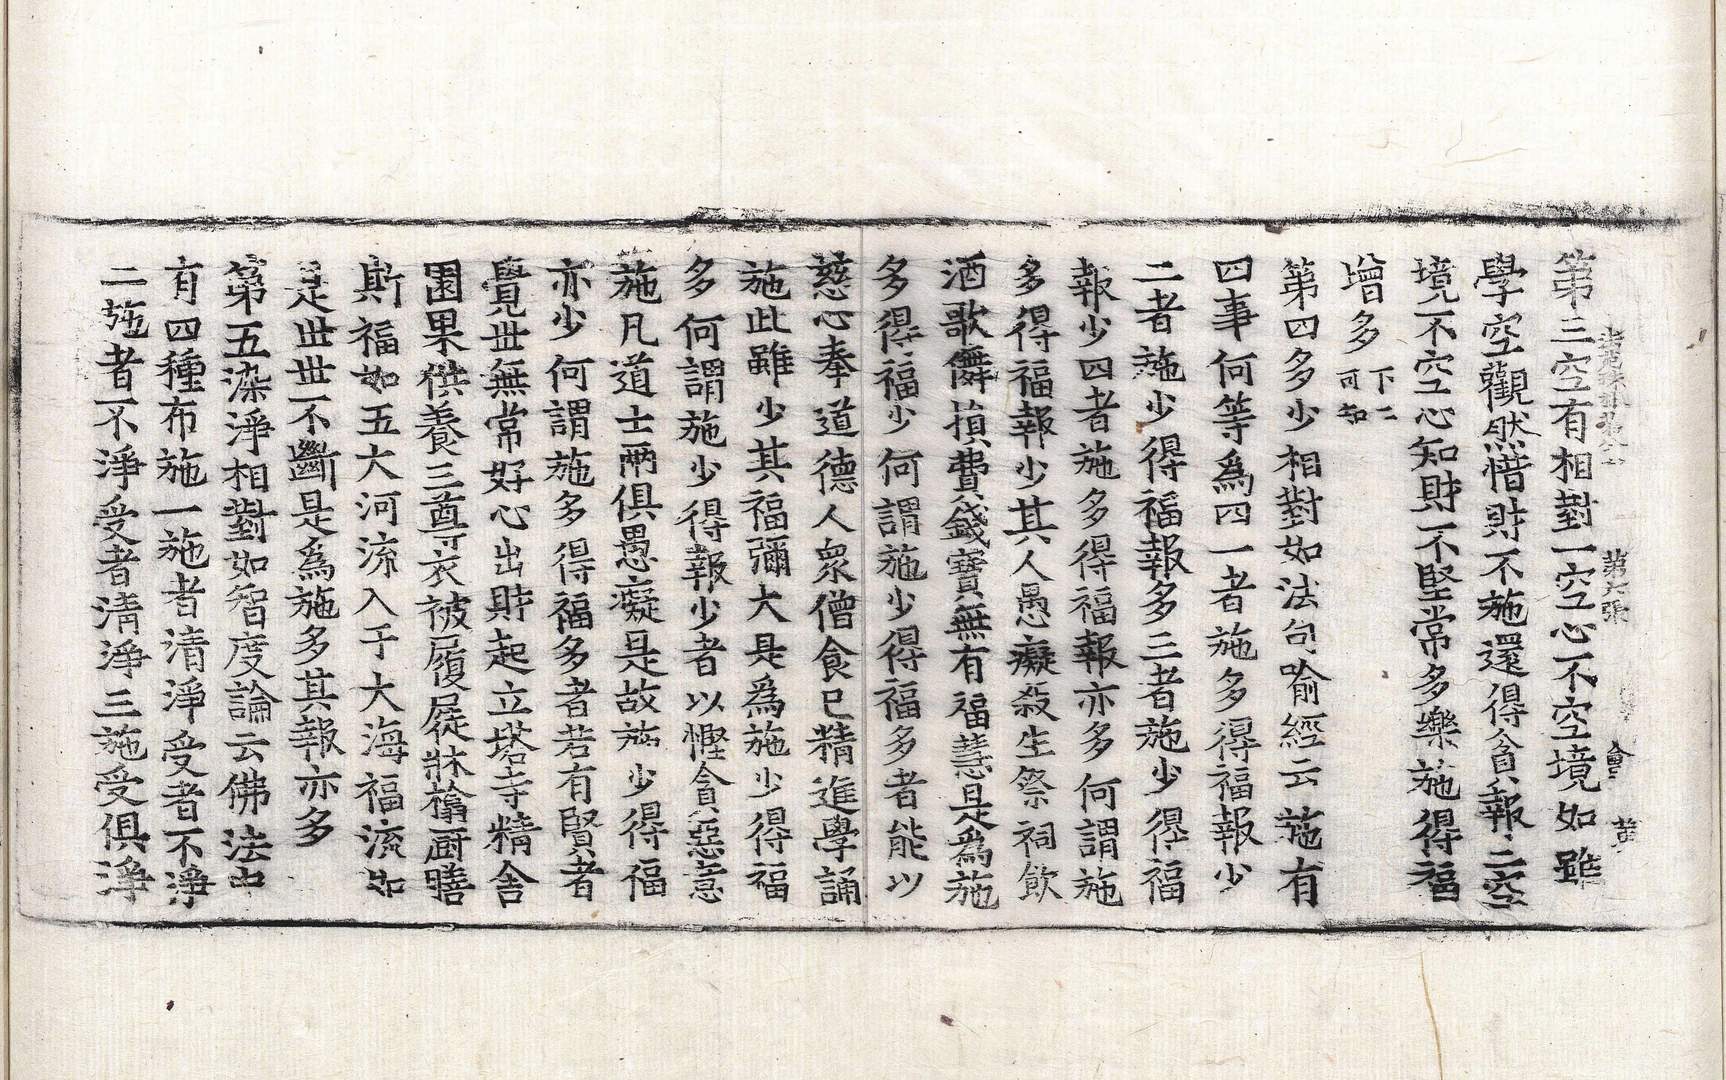 第六張
第三空有相對一空心不空境如雖
學空觀然惜財不施還得貧報二空
境不空心知財不堅常多樂施得福
增多下二可知
第四多少相對如法句喻經云施有
四事何等為四一者施多得福報少
二者施少得福報多三者施少得福
報少四者施多得福報亦多何謂施
多得福報少其人愚癡殺生祭祠飲
酒歌儛損費錢寶無有福慧是為施
多得福少何謂施少得福多者能以
慈心奉道德人眾僧食已精進學誦
施此雖少其福彌大是為施少得福
多何謂施少得報少者以慳貪惡意
施凡道士兩俱愚癡是故施少得福
亦少何謂施多得福多者若有賢者
覺世無常好心出財起立塔寺精舍
園果供養三尊衣被履屣牀榻厨膳
斯福如五大河流入于大海福流如
是世世不斷是為施多其報亦多
第五染淨相對如智度論云佛法中
有四種布施一施者清淨受者不淨
二施者不淨受者清淨三施受俱淨